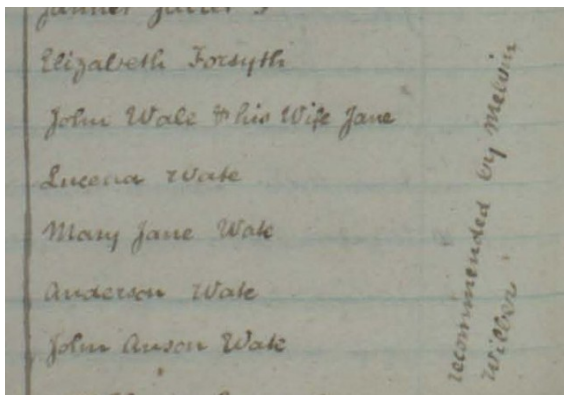 Elizabeth Forsyth
John Wale & his Wife Jane
Lucena Wate
Mary Jane Wate
Anderson Wate
John Anson Wate
recommended by Melvin
Wilber